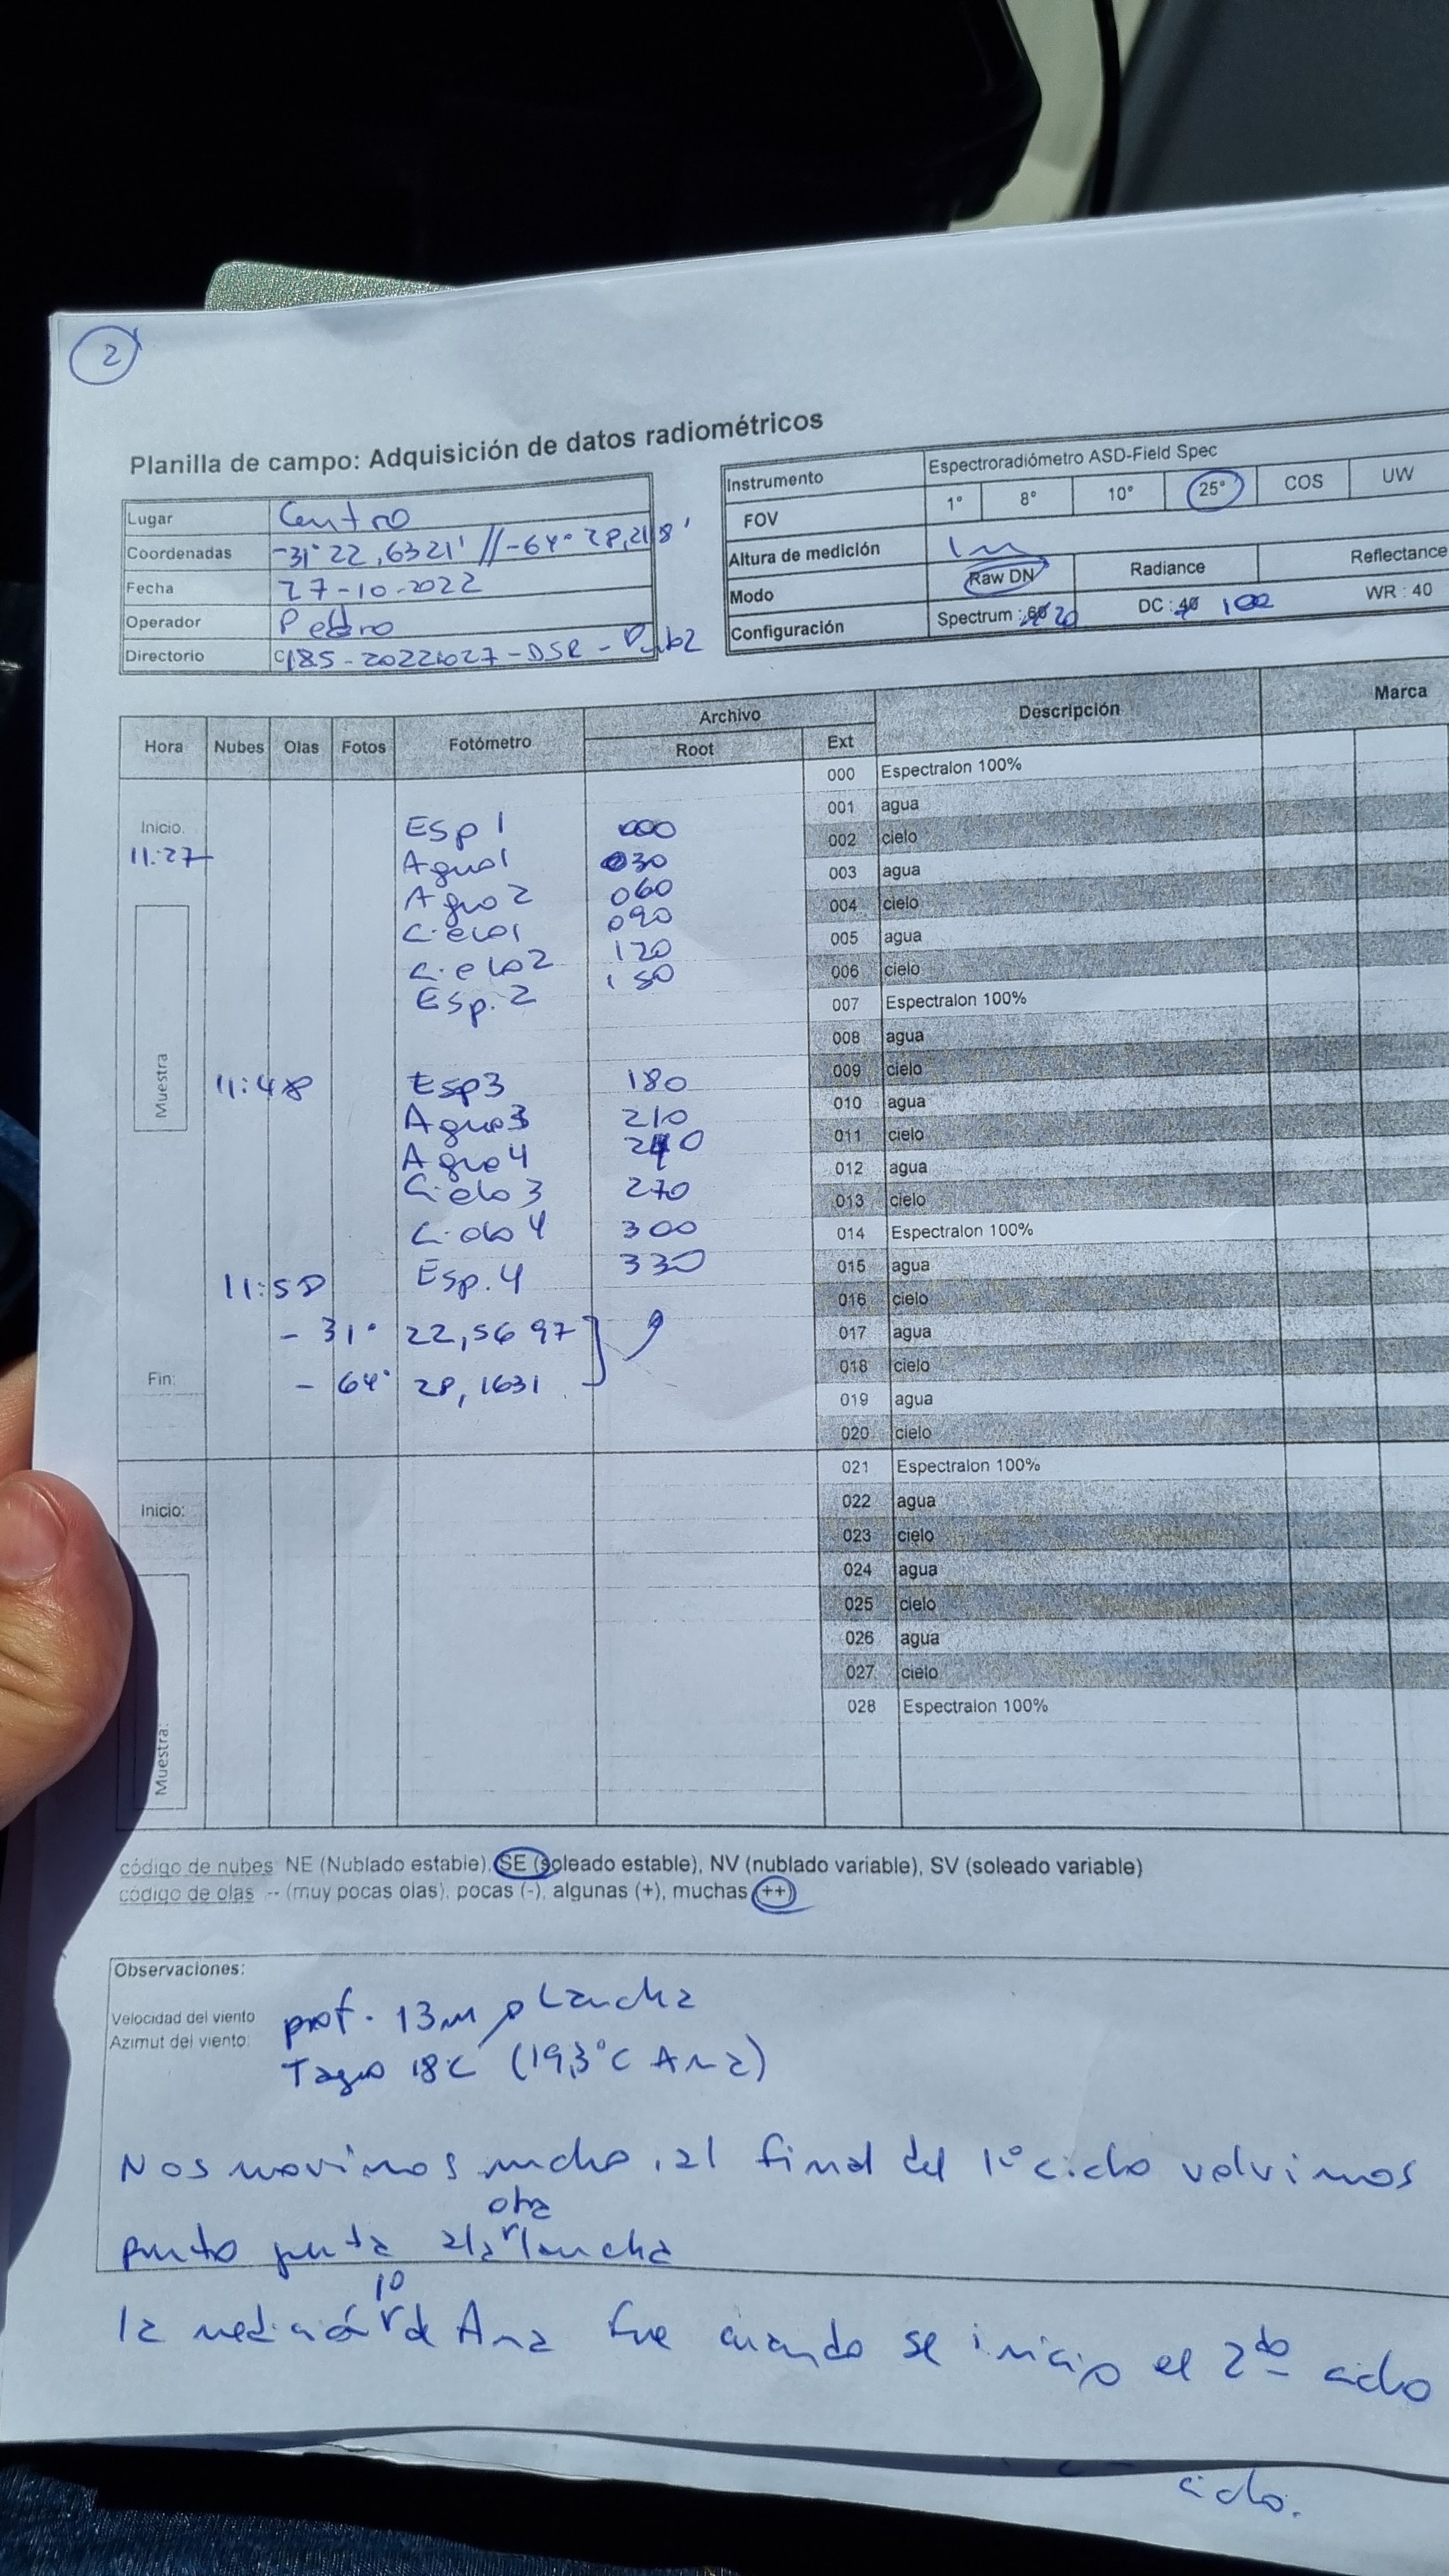 2
Planilla de campo: Adquisición de datos radiométricos
Lugar Centro
Coordenadas -31° 22,6321' // -64° 28,2118'
Fecha 27-10-2022
Operador Pedro
Directorio 20221027-DSR-
Instrumento Espectroradiómetro ASD-Field Spec
FOV 1° 8° 10° 25° COS UW
Altura de medición 1m
Modo Raw DN Radiance Reflectance
Configuración Spectrum : 20 DC : 40 100 WR : 40
Hora Nubes Olas Fotos Fotómetro Archivo Root Ext Descripción Marca
000 Espectralon 100%
Inicio: Esp 1 000 001 agua
11:27 Agua1 030 002 cielo
Agua 2 060 003 agua
Cielo1 090 004 cielo
Cielo2 120 005 agua
Esp. 2 150 006 cielo
007 Espectralon 100%
008 agua
Muestra
11:48 Esp3 180 009 cielo
Agua3 210 010 agua
Agua4 240 011 cielo
Cielo 3 270 012 agua
013 cielo
Cielo 4 300 014 Espectralon 100%
11:58 Esp. 4 330 015 agua
016 cielo
- 31° 22,5697 017 agua
Fin: - 64° 28,1631 018 cielo
019 agua
020 cielo
021 Espectralon 100%
Inicio: 022 agua
023 cielo
024 agua
025 cielo
026 agua
027 cielo
Muestra: 028 Espectralon 100%
código de nubes NE (Nublado estable), SE (soleado estable), NV (nublado variable), SV (soleado variable)
código de olas -- (muy pocas olas), pocas (-), algunas (+), muchas (++)
Observaciones:
Velocidad del viento prof. 13m lancha
Azimut del viento:
Tagua 18°C (19,3°C Ana)
Nos movimos mucho, al final del 1° ciclo volvimos
otra
punto junto a la lancha
1°
la medición de Ana fue cuando se inicio el 2do ciclo
ciclo.